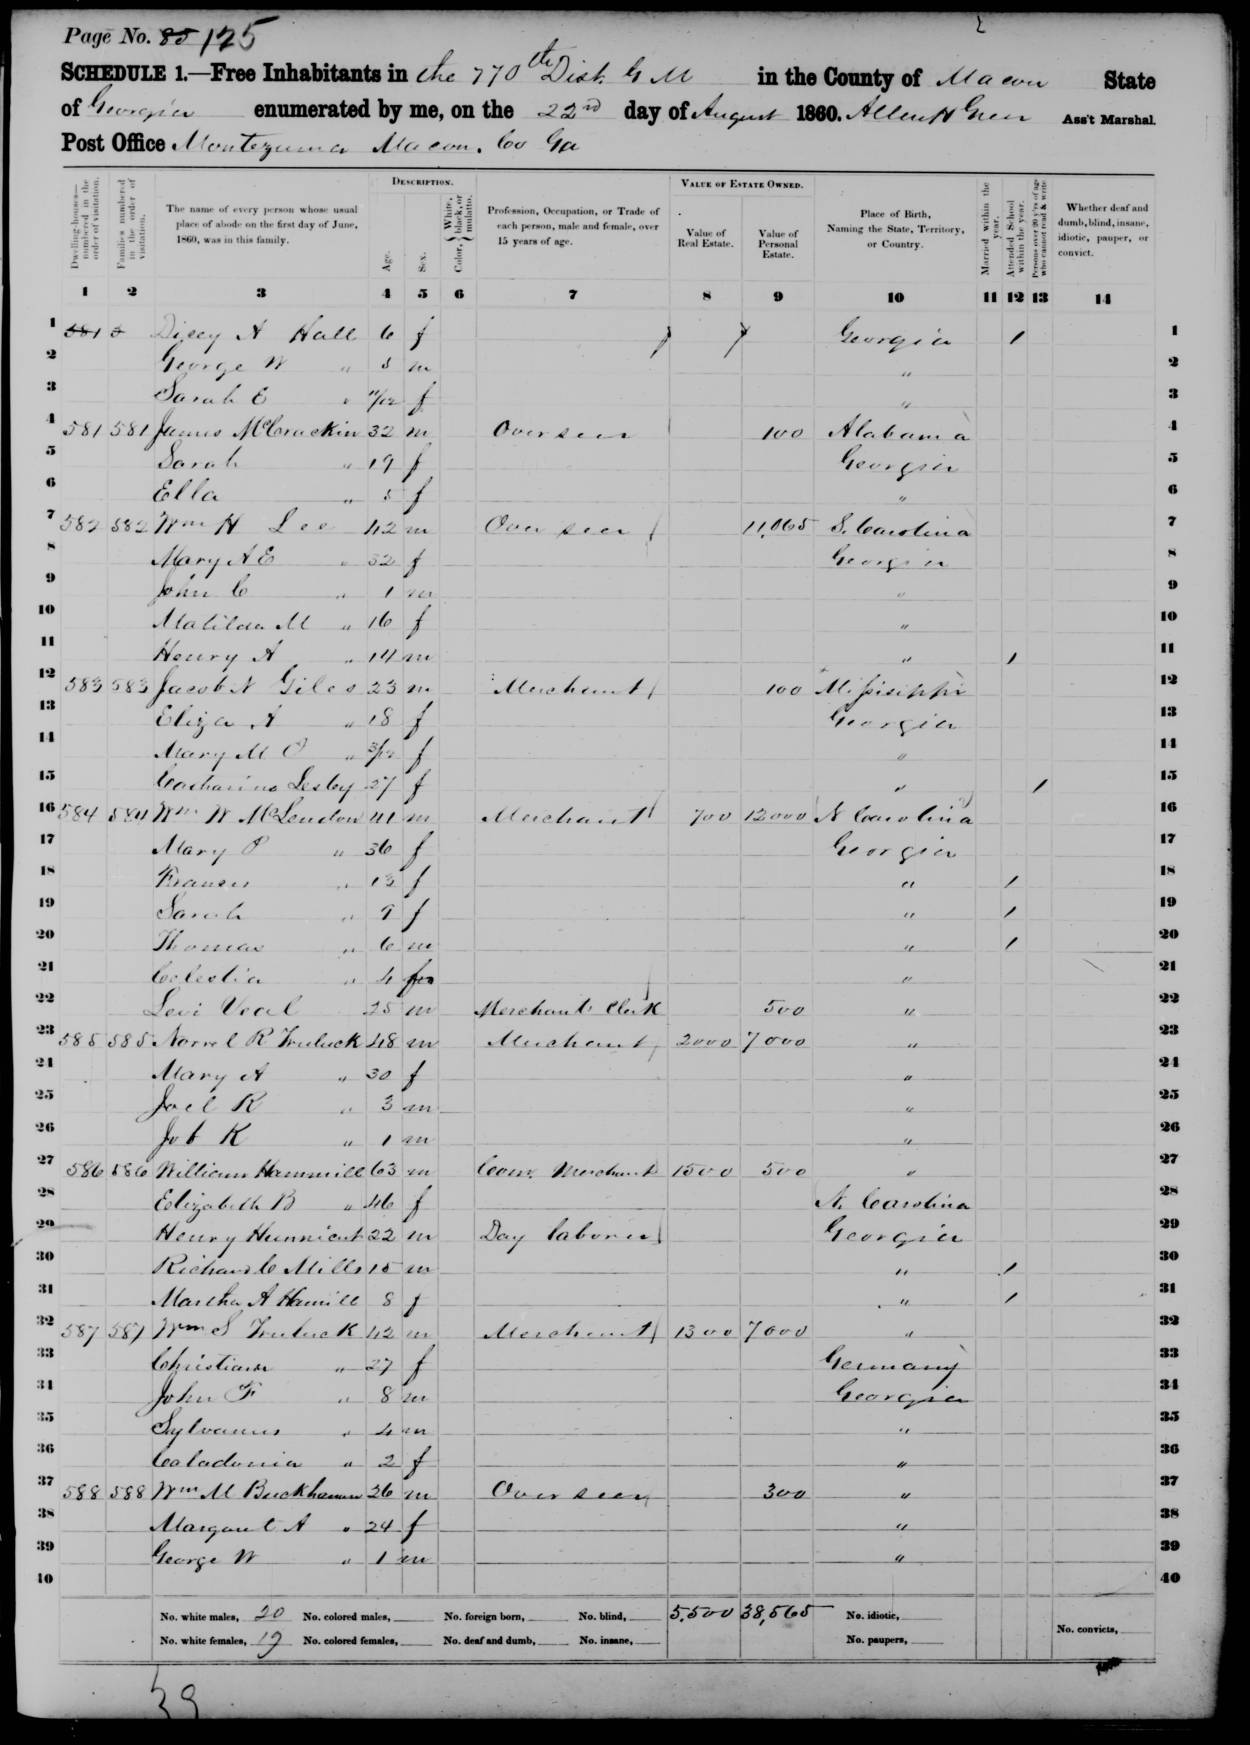 Page No. 85 125
SCHEDULE 1.—Free Inhabitants in the 770th Dist G M in the County of Macon State
of Georgia enumerated by me, on the 22nd day of August 1860. Allen H Greer Ass't Marshal.
Post Office Montezuma Macon. Co Ga
DESCRIPTION. VALUE OF ESTATE OWNED.
Dwelling-houses—numbered in the order of visitation. Families numbered in the order of visitation. The name of every person whose usual place of abode on the first day of June, 1860, was in this family. Age. Sex. Color, { White, black, or mulatto. Profession, Occupation, or Trade of each person, male and female, over 15 years of age. Value of Real Estate. Value of Personal Estate. Place of Birth, Naming the State, Territory, or Country. Married within the year. Attended School within the year. Persons over 20 y'rs of age who cannot read & write Whether deaf and dumb, blind, insane, idiotic, pauper, or convict.
1 2 3 4 5 6 7 8 9 10 11 12 13 14
1 581 5 Dicey A Hall 6 f Georgia 1 1
2 George W " 5 m " 2
3 Sarah E " 11/12 f " 3
4 581 581 James McCrackin 32 m Overseer 100 Alabama 4
5 Sarah " 19 f Georgia 5
6 Ella " 5 f " 6
7 582 582 Wm H Lee 42 m Overseer 11,065 S. Carolina 7
8 Mary A E " 32 f Georgia 8
9 John C " 1 m " 9
10 Matilda M " 16 f " 10
11 Henry A " 14 m " 1 11
12 583 583 Jacob N Giles 23 m Merchant 100 Missisippi 12
13 Eliza A " 18 f Georgia 13
14 Mary M O " 3/12 f " 14
15 Catharine Lesley 27 f " 1 15
16 584 584 Wm W McLendon 41 m Merchant 700 12000 N Carolina 16
17 Mary P " 36 f Georgia 17
18 Frances " 13 f " 1 18
19 Sarah " 9 f " 1 19
20 Thomas " 6 m " 1 20
21 Celestia " 4 f " 21
22 Levi Veal 25 m Merchants Clerk 500 " 22
23 585 585 Norrel R Truluck 48 m Merchant 2000 7000 " 23
24 Mary A " 30 f " 24
25 Joel R " 3 m " 25
26 Job K " 1 m " 26
27 586 586 William Hammill 63 m Com. Merchant 1500 500 " 27
28 Elizabeth B " 46 f N. Carolina 28
29 Henry Hunnicut 22 m Day laborer Georgia 29
30 Richard C Mills 15 m " 1 30
31 Martha A Hamill 8 f " 1 31
32 587 587 Wm S Truluck 42 m Merchant 1300 7000 " 32
33 Christiana " 27 f Germany 33
34 John F " 8 m Georgia 34
35 Sylvanus " 4 m " 35
36 Caladonia " 2 f " 36
37 588 588 Wm M Buckhannan 26 m Overseer 300 " 37
38 Margaret A " 24 f " 38
39 George W " 1 m " 39
40 40
No. white males, 20 No. colored males, No. foreign born, No. blind, 5,500 38,565 No. idiotic,
No. white females, 19 No. colored females, No. deaf and dumb, No. insane, No. paupers, No. convicts,
39